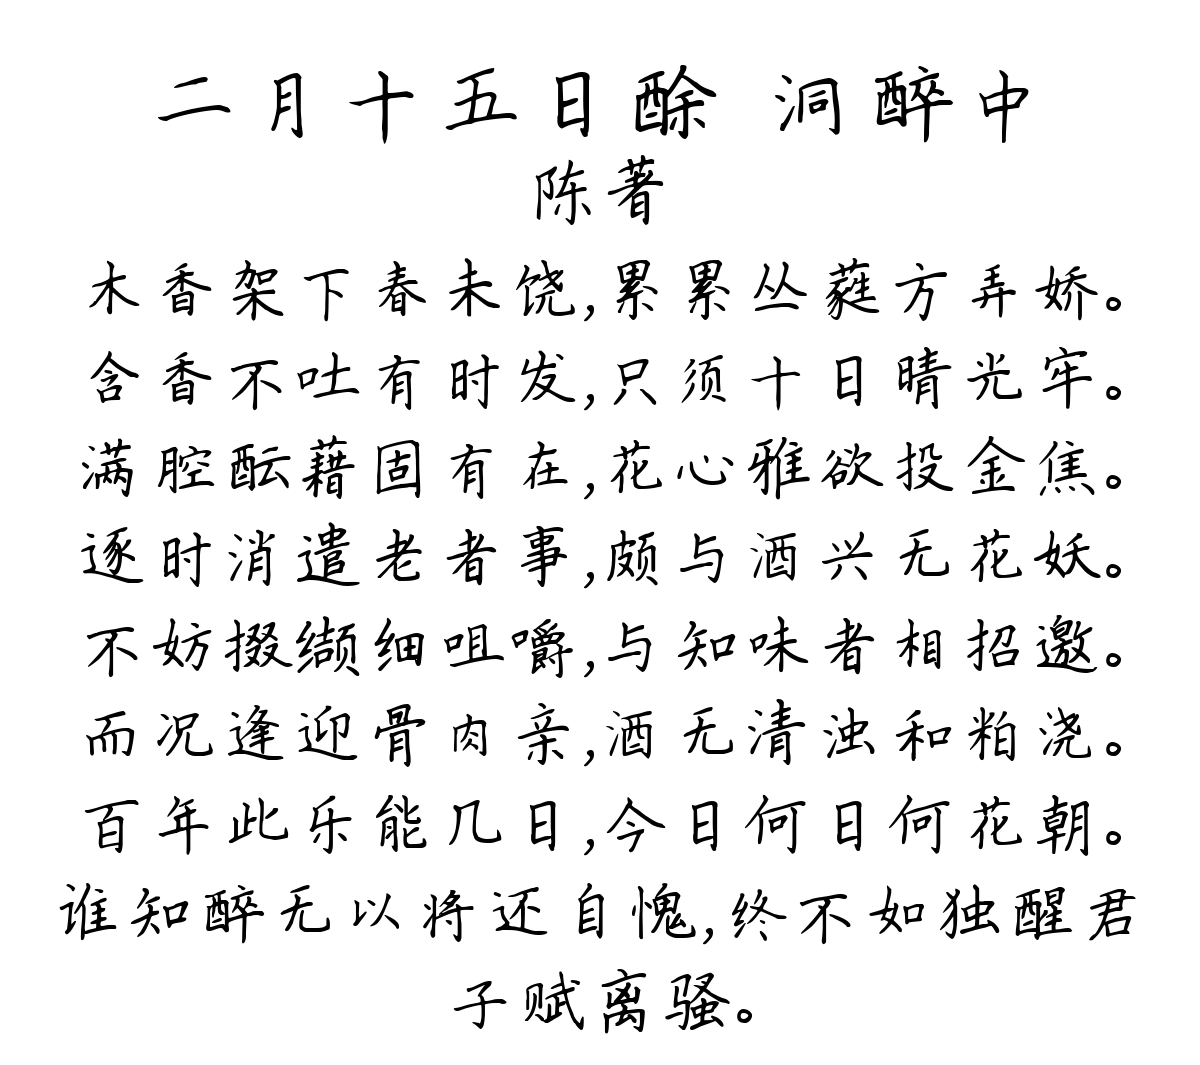 二月十五日酴 洞醉中
陈著
木香架下春未饶,累累丛蕤方弄娇。
含香不吐有时发,只须十日晴光牢。
满腔酝藉固有在,花心雅欲投金焦。
逐时消遣老者事,颇与酒兴无花妖。
不妨掇缬细咀嚼,与知味者相招邀。
而况逢迎骨肉亲,酒无清浊和粕浇。
百年此乐能几日,今日何日何花朝。
谁知醉无以将还自愧,终不如独醒君
子赋离骚。